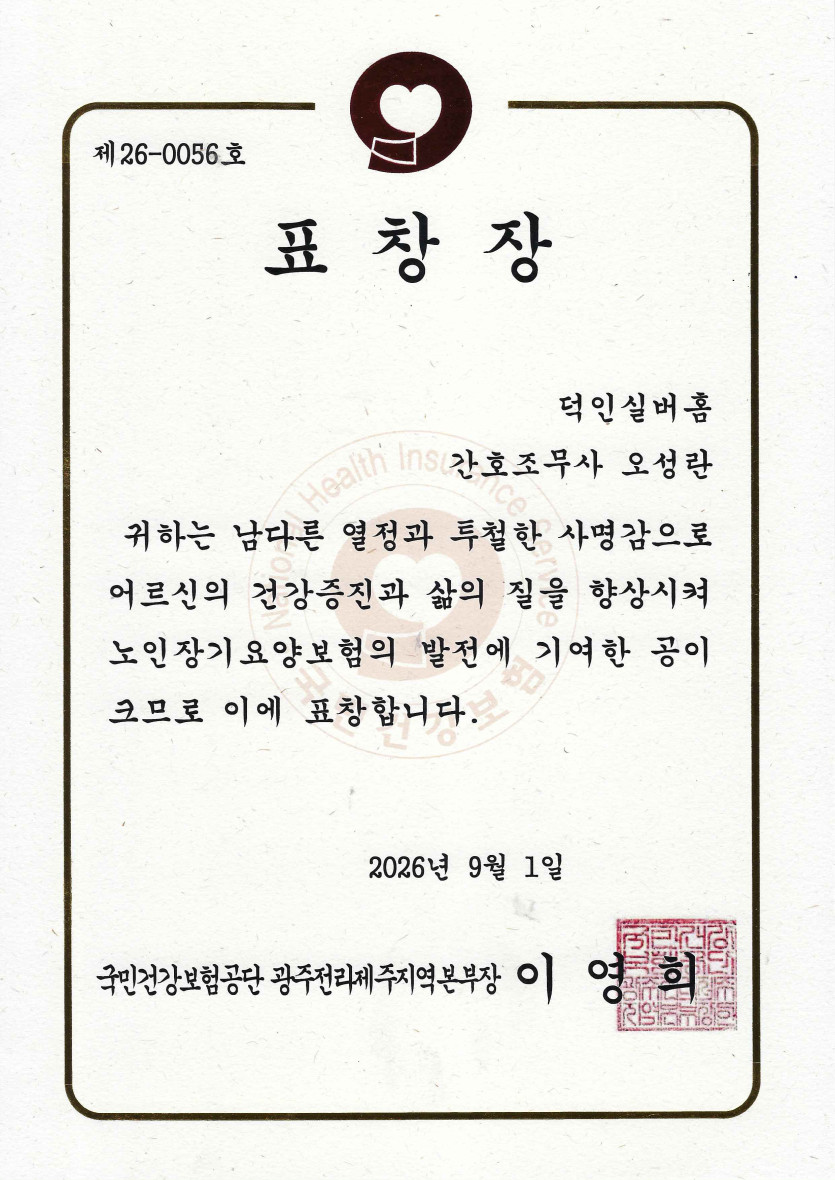 제26-0056호
표 창 장
덕인실버홈
간호조무사 오성란
귀하는 남다른 열정과 투철한 사명감으로
어르신의 건강증진과 삶의 질을 향상시켜
노인장기요양보험의 발전에 기여한 공이
크므로 이에 표창합니다.
National Health Insurance Service
국민건강보험
2026년 9월 1일
국민건강보험공단 광주전라제주지역본부장 이영희